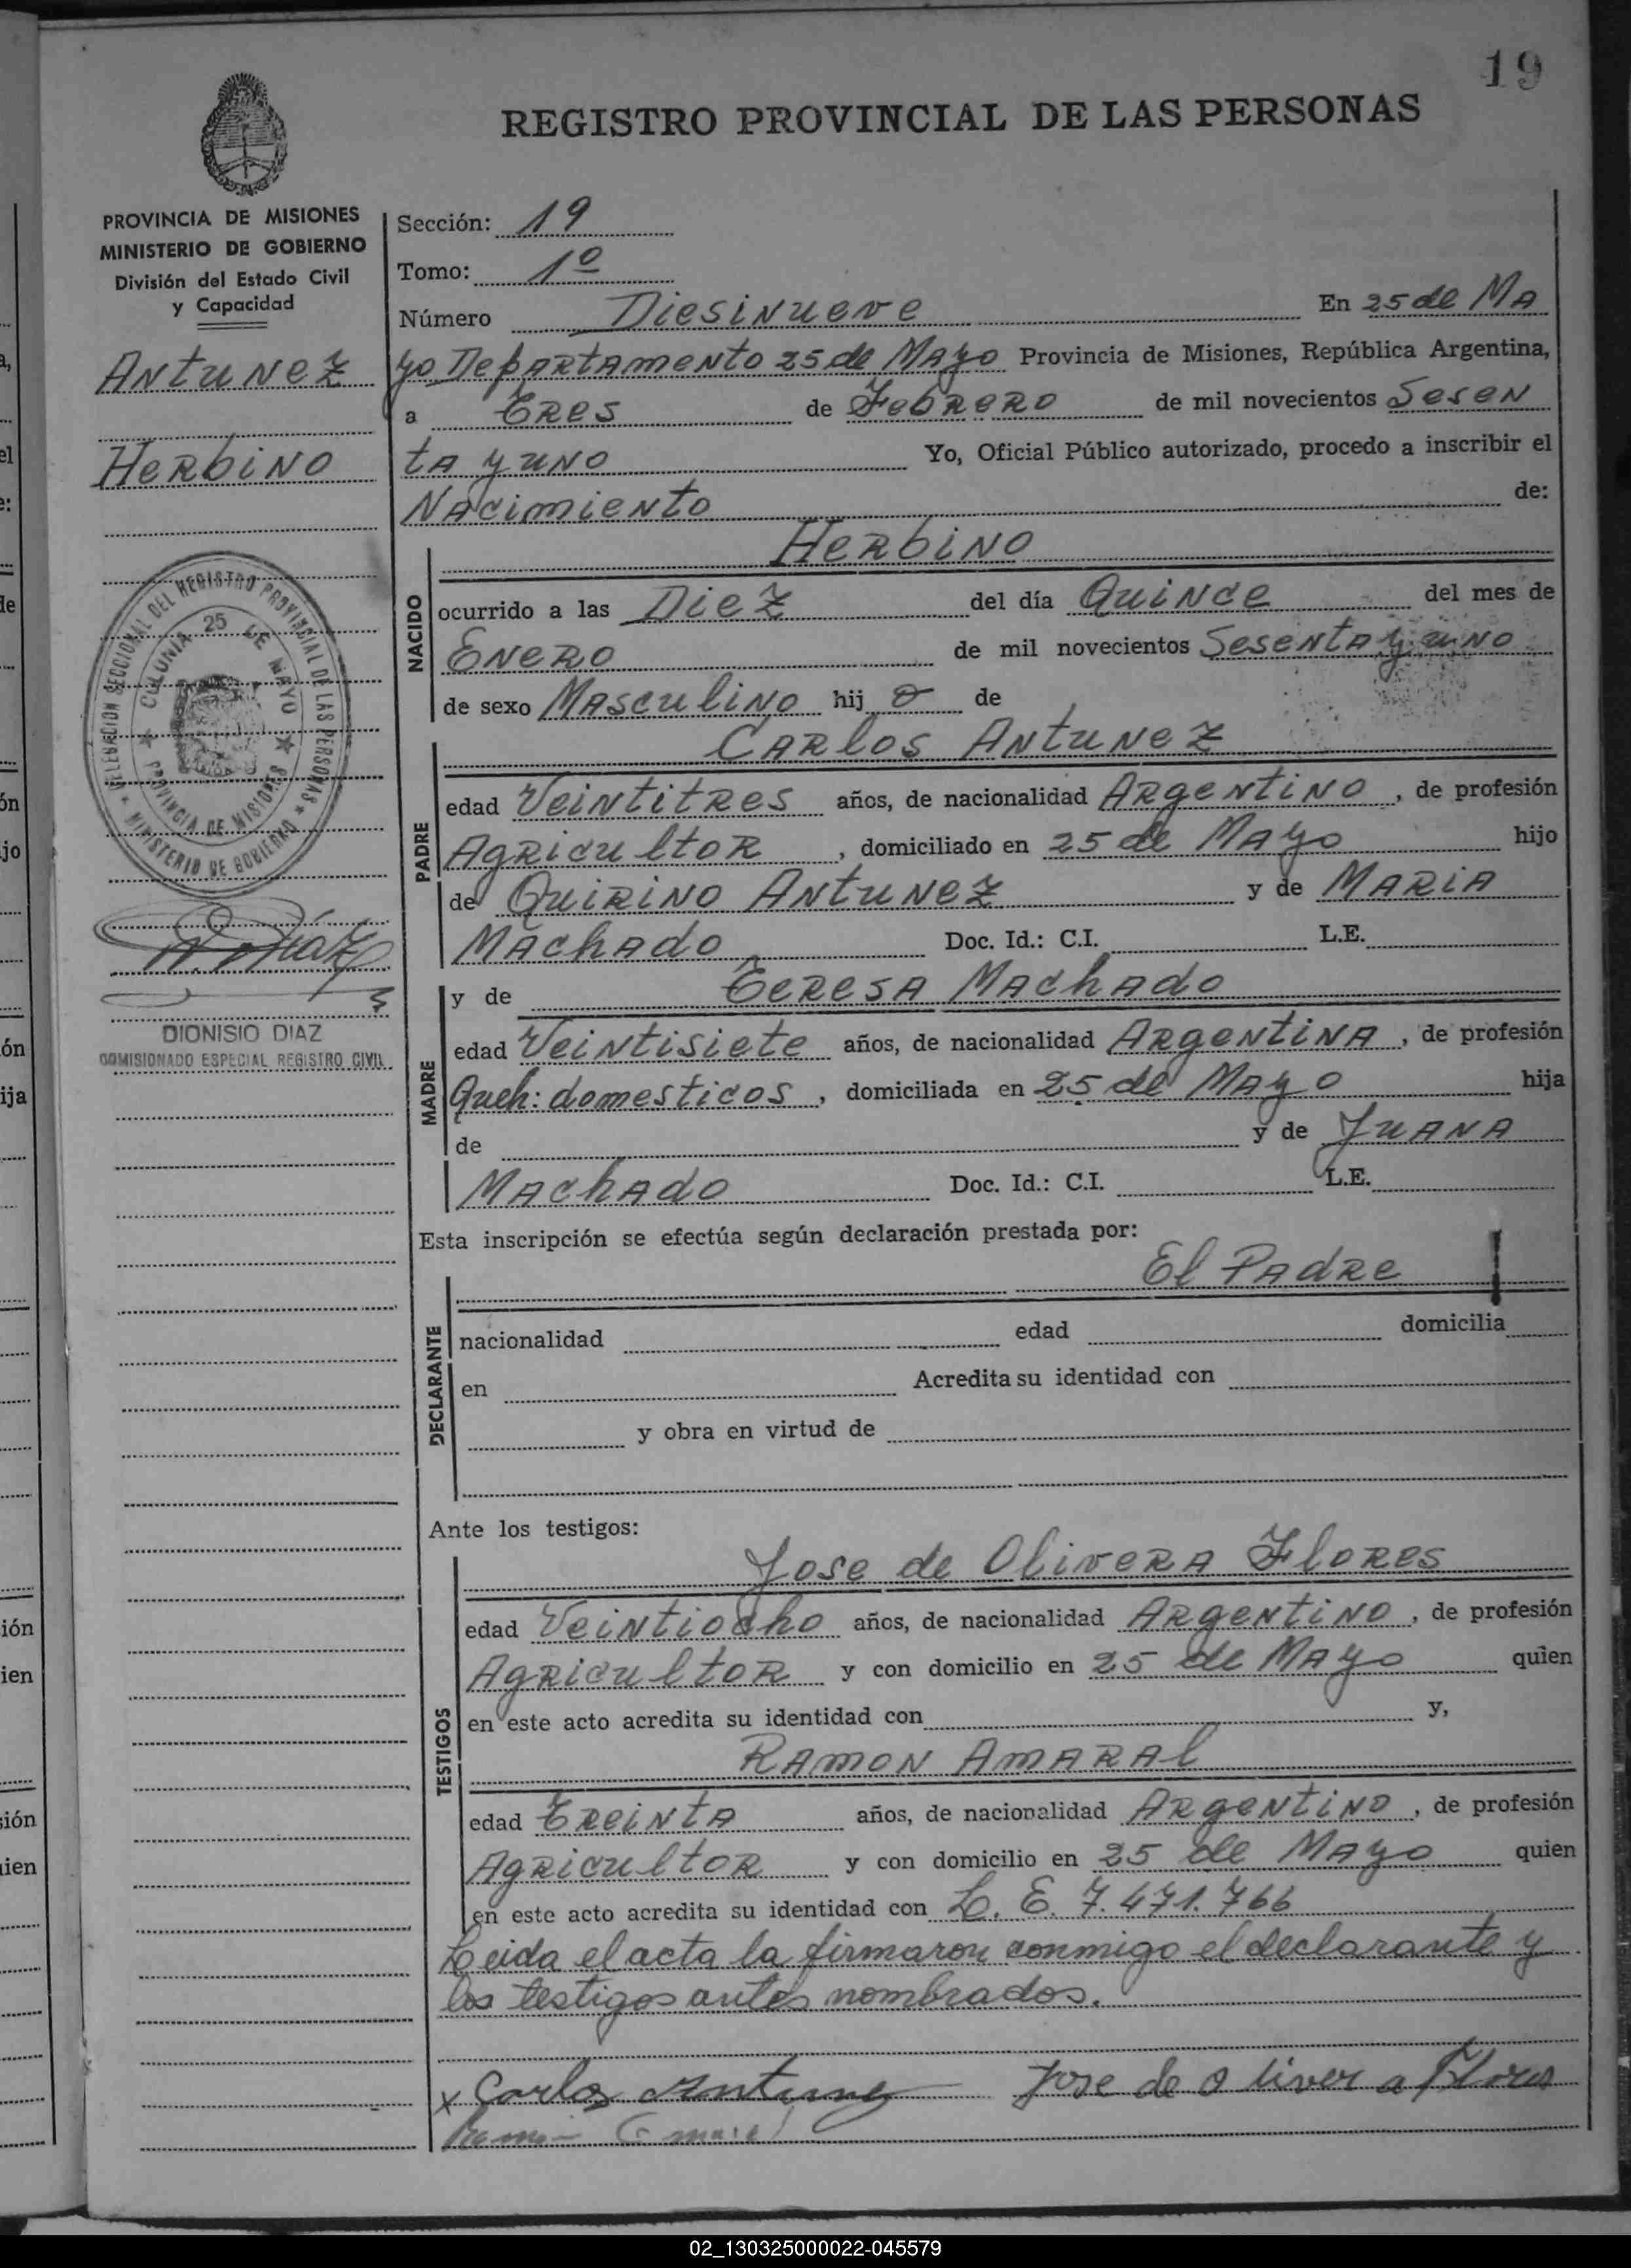 19
REGISTRO PROVINCIAL DE LAS PERSONAS
PROVINCIA DE MISIONES
MINISTERIO DE GOBIERNO
División del Estado Civil
y Capacidad
Antunez
Herbino
DELEGACION SECCIONAL DEL REGISTRO PROVINCIAL DE LAS PERSONAS
MINISTERIO DE GOBIERNO
COLONIA 25 DE MAYO
PROVINCIA DE MISIONES
DIONISIO DIAZ
COMISIONADO ESPECIAL REGISTRO CIVIL
Sección: 19
Tomo: 1º
Número Diesinueve En 25 de Ma
yo Departamento 25 de Mayo Provincia de Misiones, República Argentina,
a Tres de Febrero de mil novecientos Sesen
ta y uno Yo, Oficial Público autorizado, procedo a inscribir el
Nacimiento de:
NACIDO
Herbino
ocurrido a las Diez del día Quince del mes de
Enero de mil novecientos Sesenta y uno
de sexo Masculino hij o de
PADRE
Carlos Antunez
edad Veintitres años, de nacionalidad Argentino, de profesión
Agricultor, domiciliado en 25 de Mayo hijo
de Quirino Antunez y de Maria
Machado Doc. Id.: C.I. L.E.
MADRE
y de Teresa Machado
edad Veintisiete años, de nacionalidad Argentina, de profesión
Queh: domesticos, domiciliada en 25 de Mayo hija
de y de Juana
Machado Doc. Id.: C.I. L.E.
Esta inscripción se efectúa según declaración prestada por:
DECLARANTE
El Padre
nacionalidad edad domicilia
en Acredita su identidad con
y obra en virtud de
Ante los testigos:
TESTIGOS
Jose de Olivera Flores
edad Veintiocho años, de nacionalidad Argentino, de profesión
Agricultor y con domicilio en 25 de Mayo quien
en este acto acredita su identidad con y,
Ramon Amaral
edad Treinta años, de nacionalidad Argentino, de profesión
Agricultor y con domicilio en 25 de Mayo quien
en este acto acredita su identidad con L. E. 7.471.766
Leida el acta la firmaron conmigo el declarante y
los testigos antes nombrados.
x Carlos Antunez Jose de oliver a Flores
02_130325000022-045579